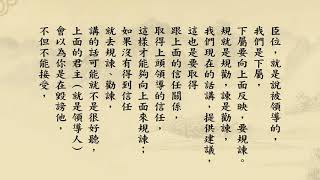 臣位，就是說被領導的，
我們是下屬，
下屬要向上面反映，要規諫。
規就是規勸，諫是勸諫，
我們現在的話講，提供建議，
這也是要取得
跟上面的信任關係，
取得上頭領導的信任，
這樣才能夠向上面來規諫；
如果沒有得到信任
就去規諫、勸諫，
講的話可能就不是很好聽，
上面的君主（就是領導人）
會以為你是在毀謗他，
不但不能接受，